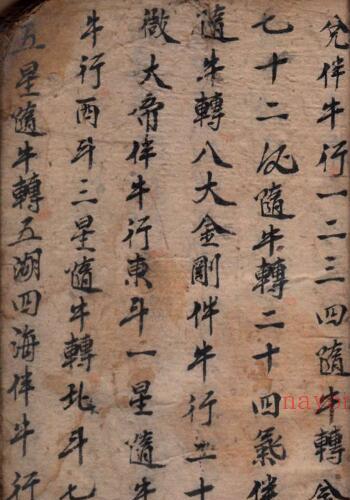 兌伴牛行一二三四隨牛轉
七十二侯隨牛轉二十四氣伴
隨牛轉八大金剛伴牛行二十
微大帝伴牛行東斗一星隨牛
牛行西斗三星隨牛轉北斗七
五星隨牛轉五湖四海伴牛行